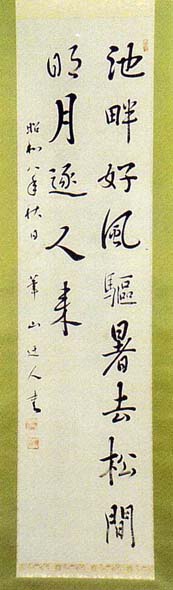 池畔好風驅暑去松間
明月逐人来
昭和八年秋日 筆山迂人書